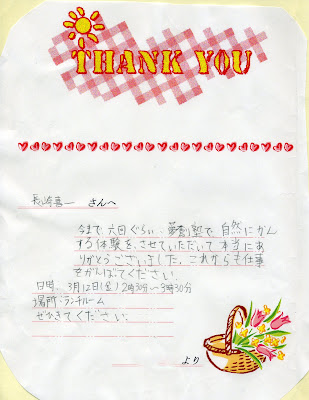 THANK YOU
長崎喜一 さんへ
今まで、六回ぐらい、夢創塾で自然にかん
する体験を、させていただいて本当にあ
りがとうございました。これからも仕事
をがんばてください。
日時、3月12日(金)2時30分〜3時30分
場所:ランチルーム
ぜひきてください。
より